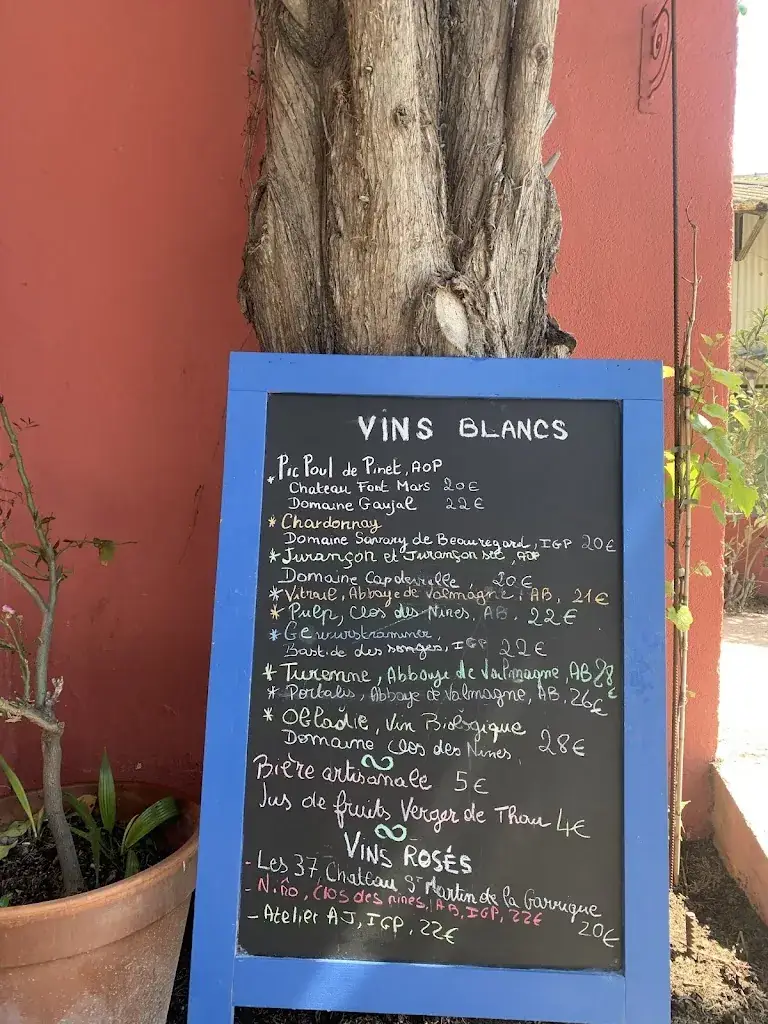 VINS BLANCS
* Pic Poul de Pinet, AOP
Chateau Font Mars 20€
Domaine Gaujal 22€
* Chardonnay
Domaine Savary de Beauregard, IGP 20€
* Jurançon et Jurançon sec, AOP
Domaine Capdevielle, 20€
* Vitrail, Abbaye de Valmagne, AB, 21€
* Pulp, Clos des Nines, AB, 22€
* Gewurstraminer,
Bastide des songes, IGP 22€
* Turenne, Abbaye de Valmagne, AB 28€
* Portalis, Abbaye de Valmagne, AB, 26€
* Obladie, Vin Biologique
Domaine Clos des Nines, 28€
∞
Bière artisanale 5€
Jus de fruits Verger de Thau 4€
∞
VINS ROSÉS
- Les 37, Chateau St Martin de la Garrigue
20€
- Niño, Clos des nines, AB, IGP, 22€
- Atelier AJ, IGP, 22€